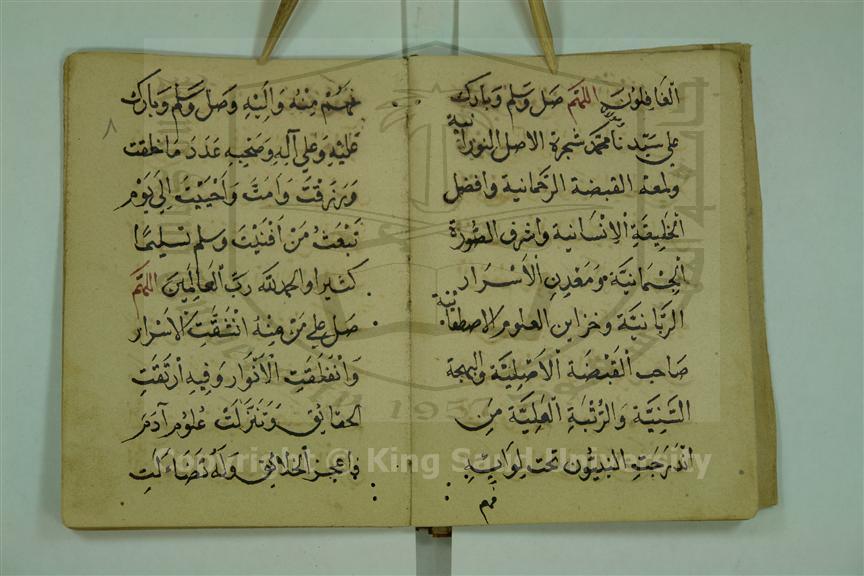 الْغَافِلُونَ اللهم صَل وَسَلم وَبَارك
على سَيّدنَا ومولانا محمد شجرة الاصل النورانية
ولمعة القبضة الرحمانية وافضل
الخليقة الْاِنْسَانية واشرف الصُّورة
الْجِسْمَانيَّة وَمَعْدِنِ الْاَسْرَار
الرَّبَّانيَّة وخزاين العلوم الاصطفائية
صَاحب الْقَبْضَة الْاَصْلِيَّة والبهجة
السَّنِيَّة وَالرُّتْبَةِ الْعَلِيَّة مَن
انْدَرَجَتِ النبيُّون تحت لِوَايِهِ
فهم
٨
فَهُمْ مِنْهُ وَاِلَيْهِ وَصَلّ وَسَلّم وَبَارك
عَلَيْهِ وَعَلى آلِهِ وَصَحْبِهِ عَدَدَ مَا خلقت
وَرَزَقْتَ وَاَمَتَّ وَاَحْيَيْتَ اِلى يَوْمِ
تَبْعَثُ مَنْ اَفْنَيْتَ وَسلم تَسْلِيمًا
كثيرا والحمد لله ربّ الْعَالَمِينَ اللهم
صَل على مَنْ مِنْهُ انْشَقَّتِ الْاَسْرَار
وَانْفَلَقَتِ الْاَنْوَار وَفِيهِ ارْتَقَتِ
الحقايق وَتَنَزَّلَتْ عُلُوم آدَم
فاعجز الخلائق وَلَهُ تَضَاءَلَتِ
Copyright © King Saud University
1957